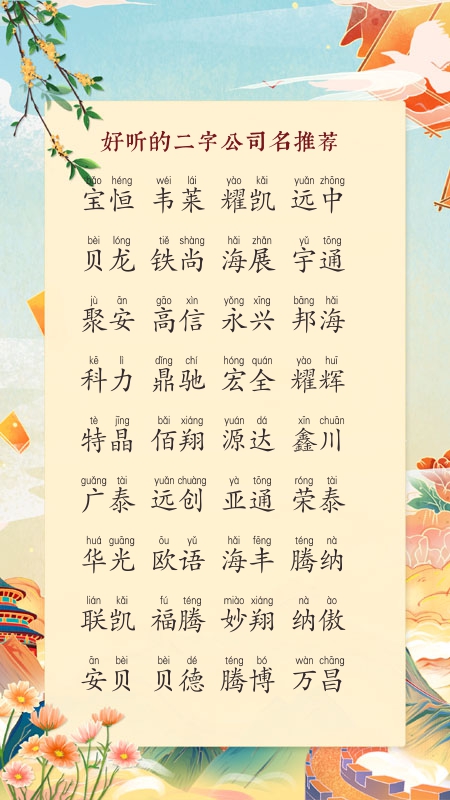 好听的二字公司名推荐
bǎo héng wéi lái yào kǎi yuǎn zhōng
宝恒 韦莱 耀凯 远中
bèi lóng tiě shàng hǎi zhǎn yǔ tōng
贝龙 铁尚 海展 宇通
jù ān gāo xìn yǒng xīng bāng hǎi
聚安 高信 永兴 邦海
kē lì dǐng chí hóng quán yào huī
科力 鼎驰 宏全 耀辉
tè jīng bǎi xiáng yuán dá xīn chuān
特晶 佰翔 源达 鑫川
guǎng tài yuǎn chuàng yà tōng róng tài
广泰 远创 亚通 荣泰
huá guāng ōu yǔ hǎi fēng téng nà
华光 欧语 海丰 腾纳
lián kǎi fú téng miào xiáng nà ào
联凯 福腾 妙翔 纳傲
ān bèi bèi dé téng bó wàn chāng
安贝 贝德 腾博 万昌